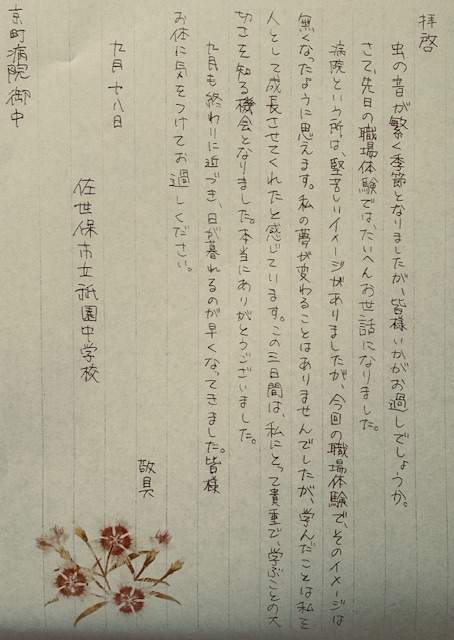 拝啓
虫の音が繁く季節となりましたが、皆様いかがお過しでしょうか。
さて、先日の職場体験では、たいへんお世話になりました。
病院という所は、堅苦しいイメージがありましたが、今回の職場体験で、そのイメージは
無くなったように思えます。私の夢が変わることはありませんでしたが、学んだことは私を
人として成長させてくれたと感じています。この三日間は、私にとって貴重で、学ぶことの大
切さを知る機会となりました。本当にありがとうございました。
九月も終わりに近づき、日が暮れるのが早くなってきました。皆様
お体に気をつけてお過しください。
敬具
九月十八日
佐世保市立祇園中学校
京町病院御中